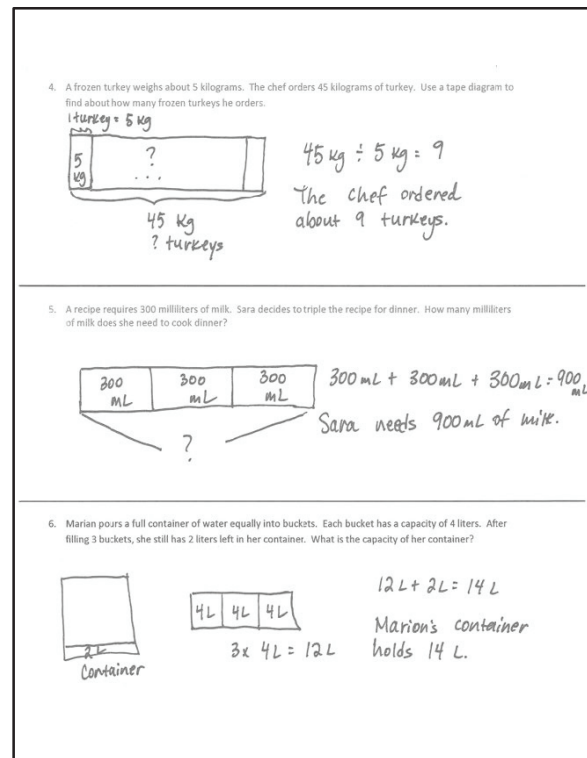 4. A frozen turkey weighs about 5 kilograms. The chef orders 45 kilograms of turkey. Use a tape diagram to
find about how many frozen turkeys he orders.
1 turkey = 5 kg
5
kg
?
...
45 kg
? turkeys
45 kg ÷ 5 kg = 9
The chef ordered
about 9 turkeys.
5. A recipe requires 300 milliliters of milk. Sara decides to triple the recipe for dinner. How many milliliters
of milk does she need to cook dinner?
300 300 300
mL mL mL
?
300 mL + 300 mL + 300 mL = 900
mL
Sara needs 900 mL of milk.
6. Marian pours a full container of water equally into buckets. Each bucket has a capacity of 4 liters. After
filling 3 buckets, she still has 2 liters left in her container. What is the capacity of her container?
2L
Container
4L 4L 4L
3x 4L = 12L
12L + 2L = 14L
Marion's container
holds 14 L.